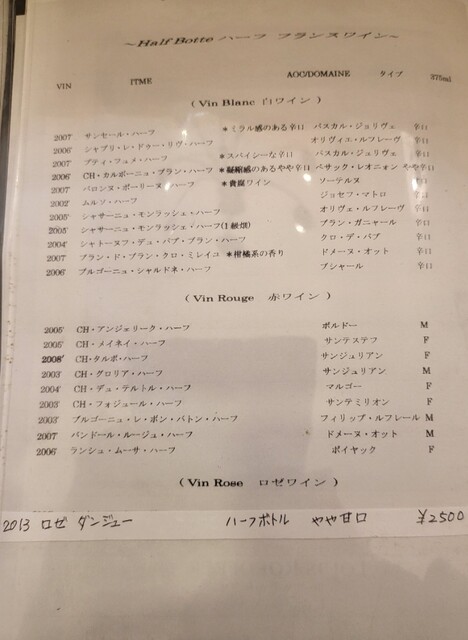 ~Half Botte ハーフ フランスワイン~
VIN ITME AOC/DOMAINE タイプ 375ml
(Vin Blanc 白ワイン)
2007' サンセール・ハーフ *ミラル感のある辛口 パスカル・ジョリヴェ 辛口
2006' シャブリ・レ・ドゥー・リヴ・ハーフ オリヴィエ・ルフレーヴ 辛口
2007' プティ・フュメ・ハーフ *スパイシーな辛口 パスカル・ジュリヴェ 辛口
2006' CH・カルボーニュ・ブラン・ハーフ *凝縮感のあるやや辛口 ペサック・レオニャン やや辛口
2007' バロンヌ・ポーリーヌ・ハーフ *貴腐ワイン ソーテルヌ 甘口
2002' ムルソ・ハーフ ジョセフ・マトロ 辛口
2005' シャサーニュ・モンラッシェ・ハーフ オリヴェ・ルフレーヴ 辛口
2005' シャサーニュ・モンラッシェ・ハーフ(1級畑) ブラン・ガニャール 辛口
2004' シャトーヌフ・デュ・パプ・ブラン・ハーフ クロ・デ・パプ 辛口
2007' ブラン・ド・ブラン・クロ・ミレイユ *柑橘系の香り ドメーヌ・オット 辛口
2006' ブルゴーニュ・シャルドネ・ハーフ ブシャール 辛口
(Vin Rouge 赤ワイン)
2005' CH・アンジェリーク・ハーフ ボルドー M
2005' CH・メイネイ・ハーフ サンテステフ F
2008' CH・タルボ・ハーフ サンジュリアン F
2003' CH・グロリア・ハーフ サンジュリアン M
2004' CH・デュ・テルトル・ハーフ マルゴー F
2003' CH・フォジュール・ハーフ サンテミリオン F
2003' ブルゴーニュ・レ・ボン・バトン・ハーフ フィリップ・ルフレール M
2007' バンドール・ルージュ・ハーフ ドメーヌ・オット M
2006' ランシュ・ムーサ・ハーフ ポイヤック F
(Vin Rose ロゼワイン)
2013 ロゼ ダンジュー ハーフボトル やや甘口 ¥2500